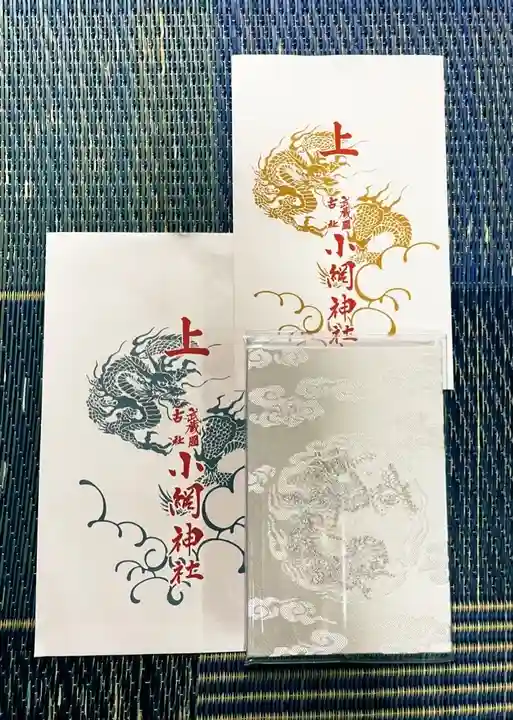 上
武蔵國
古社
小網神社
上
武蔵國
古社
小網神社